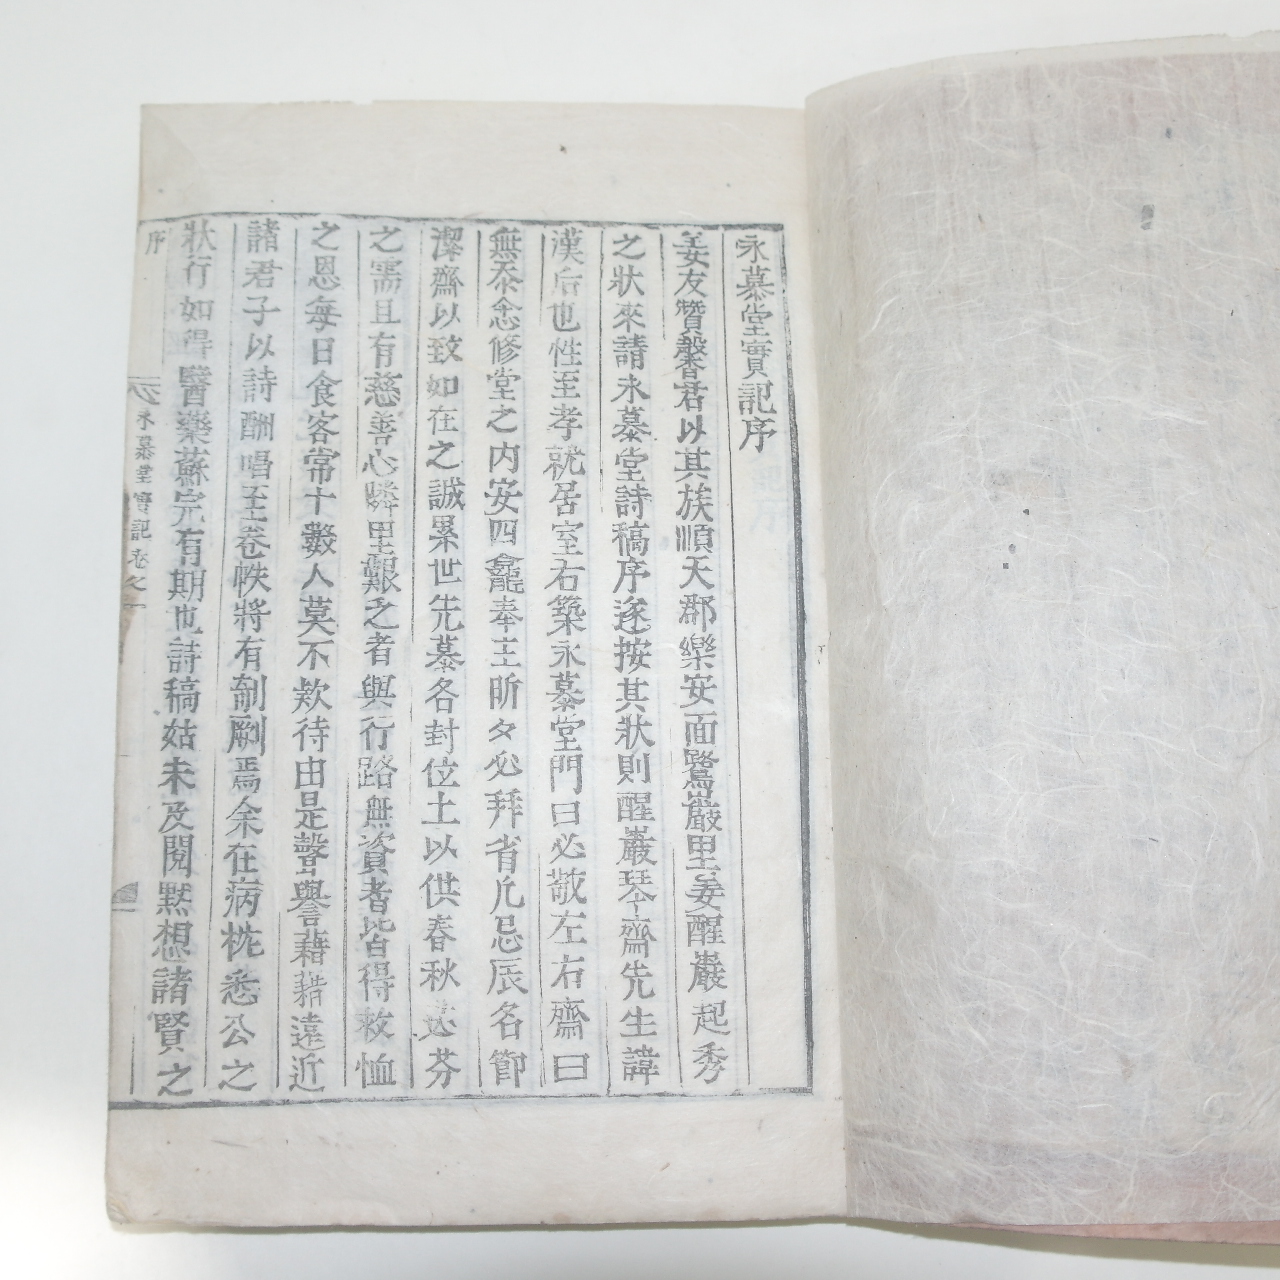 永慕堂實記序
姜友贊馨君以其族順天郡樂安面鷺巖里姜醒巖起秀
之狀來請永慕堂詩稿序遂按其狀則醒巖琴齋先生諱
漢后也性至孝就居室右築永慕堂門曰必敬左右齋曰
無忝念修堂之内安四龕奉主昕夕必拜省凡忌辰名節
潔齋以致如在之誠累世先墓各封位土以供春秋苾芬
之需且有慈善心隣里艱乏者與行路無資者皆得救恤
之恩每日食客常十數人莫不欵待由是聲譽藉藉遠近
諸君子以詩酬唱至卷帙將有剞劂焉余在病枕悉公之
狀行如得醫藥蘇完有期也詩稿姑未及閱黙想諸賢之
序
永慕堂實記卷之一